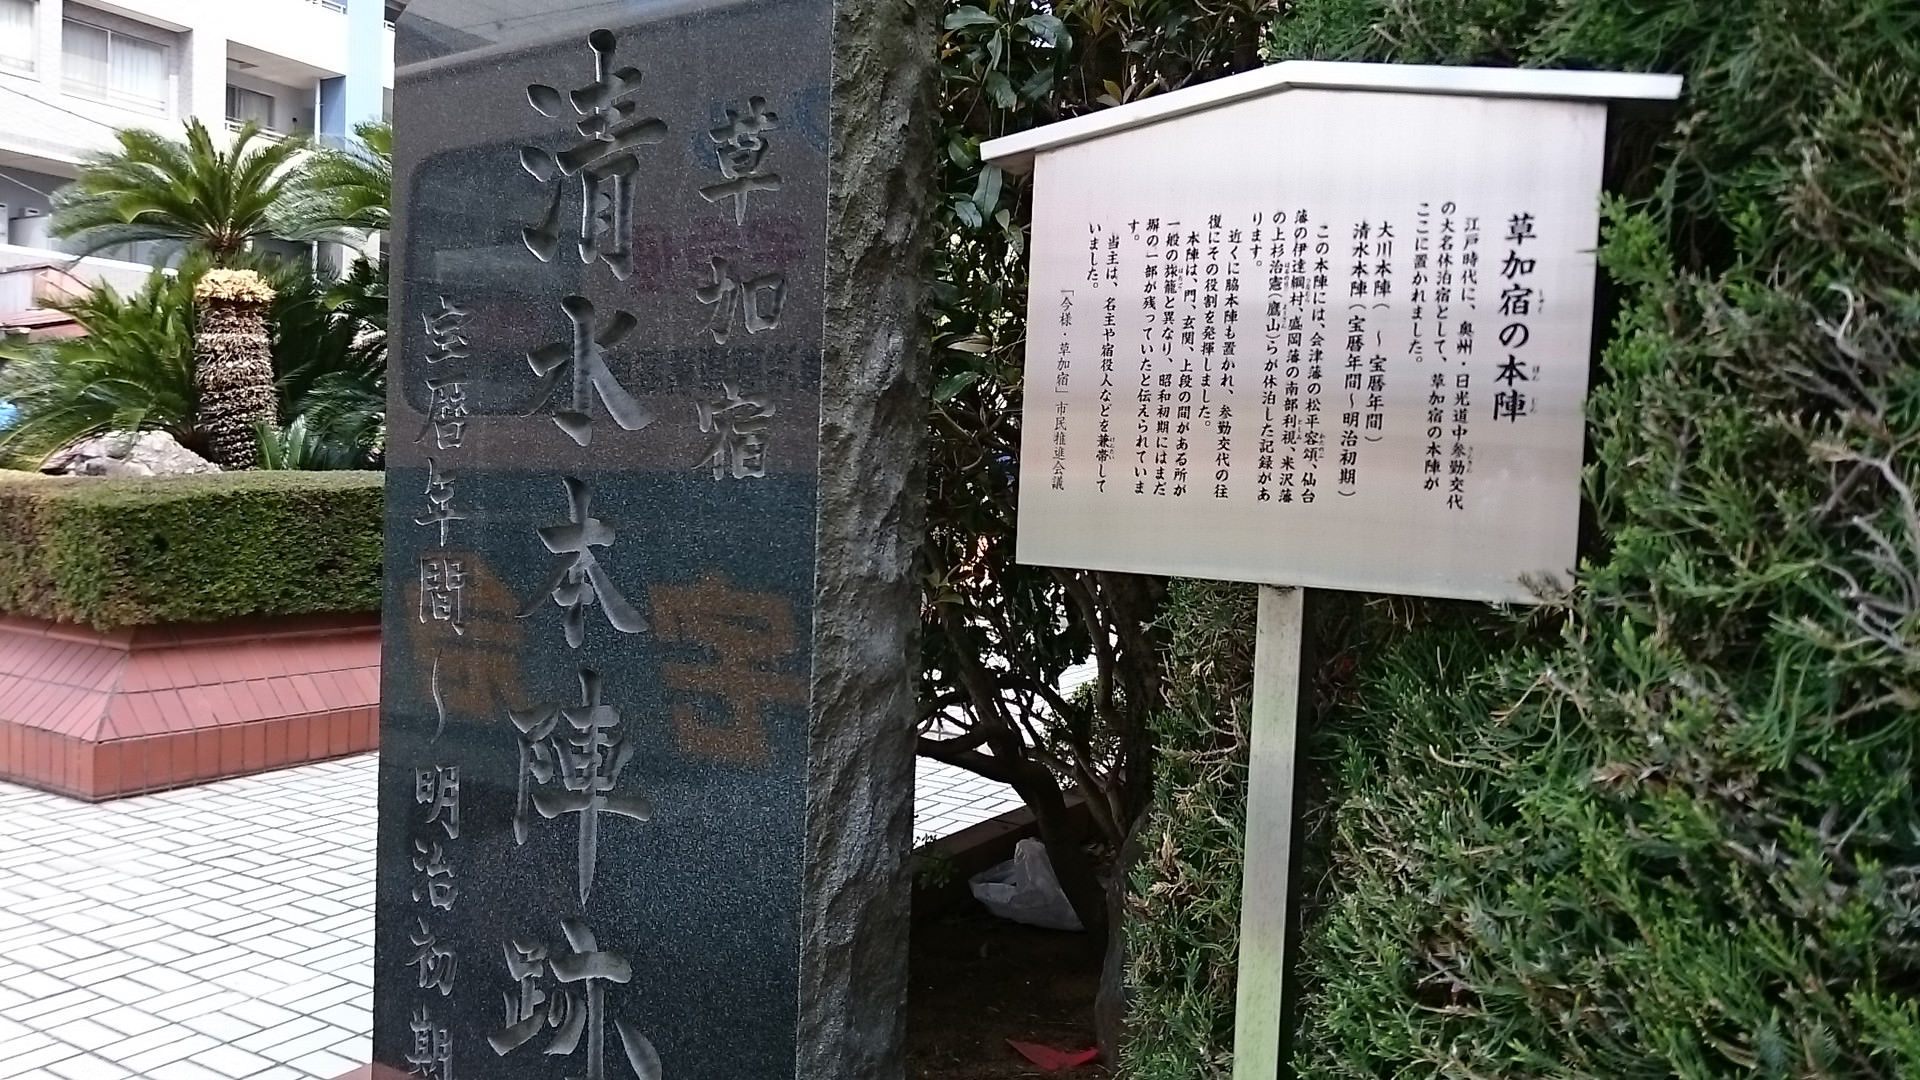 草加宿
清水本陣跡
宝暦年間～明治初期
草加宿の本陣
江戸時代に、奥州・日光道中参勤交代
の大名休泊宿として、草加宿の本陣が
ここに置かれました。
大川本陣（　～宝暦年間）
清水本陣（宝暦年間～明治初期）
この本陣には、会津藩の松平容頌、仙台
藩の伊達綱村、盛岡藩の南部利視、米沢藩
の上杉治憲（鷹山）らが休泊した記録があ
ります。
近くに脇本陣も置かれ、参勤交代の往
復にその役割を発揮しました。
本陣は、門、玄関、上段の間がある所が
一般の旅籠と異なり、昭和初期にはまだ
塀の一部が残っていたと伝えられていま
す。
当主は、名主や宿役人などを兼帯して
いました。
「今様・草加宿」市民推進会議